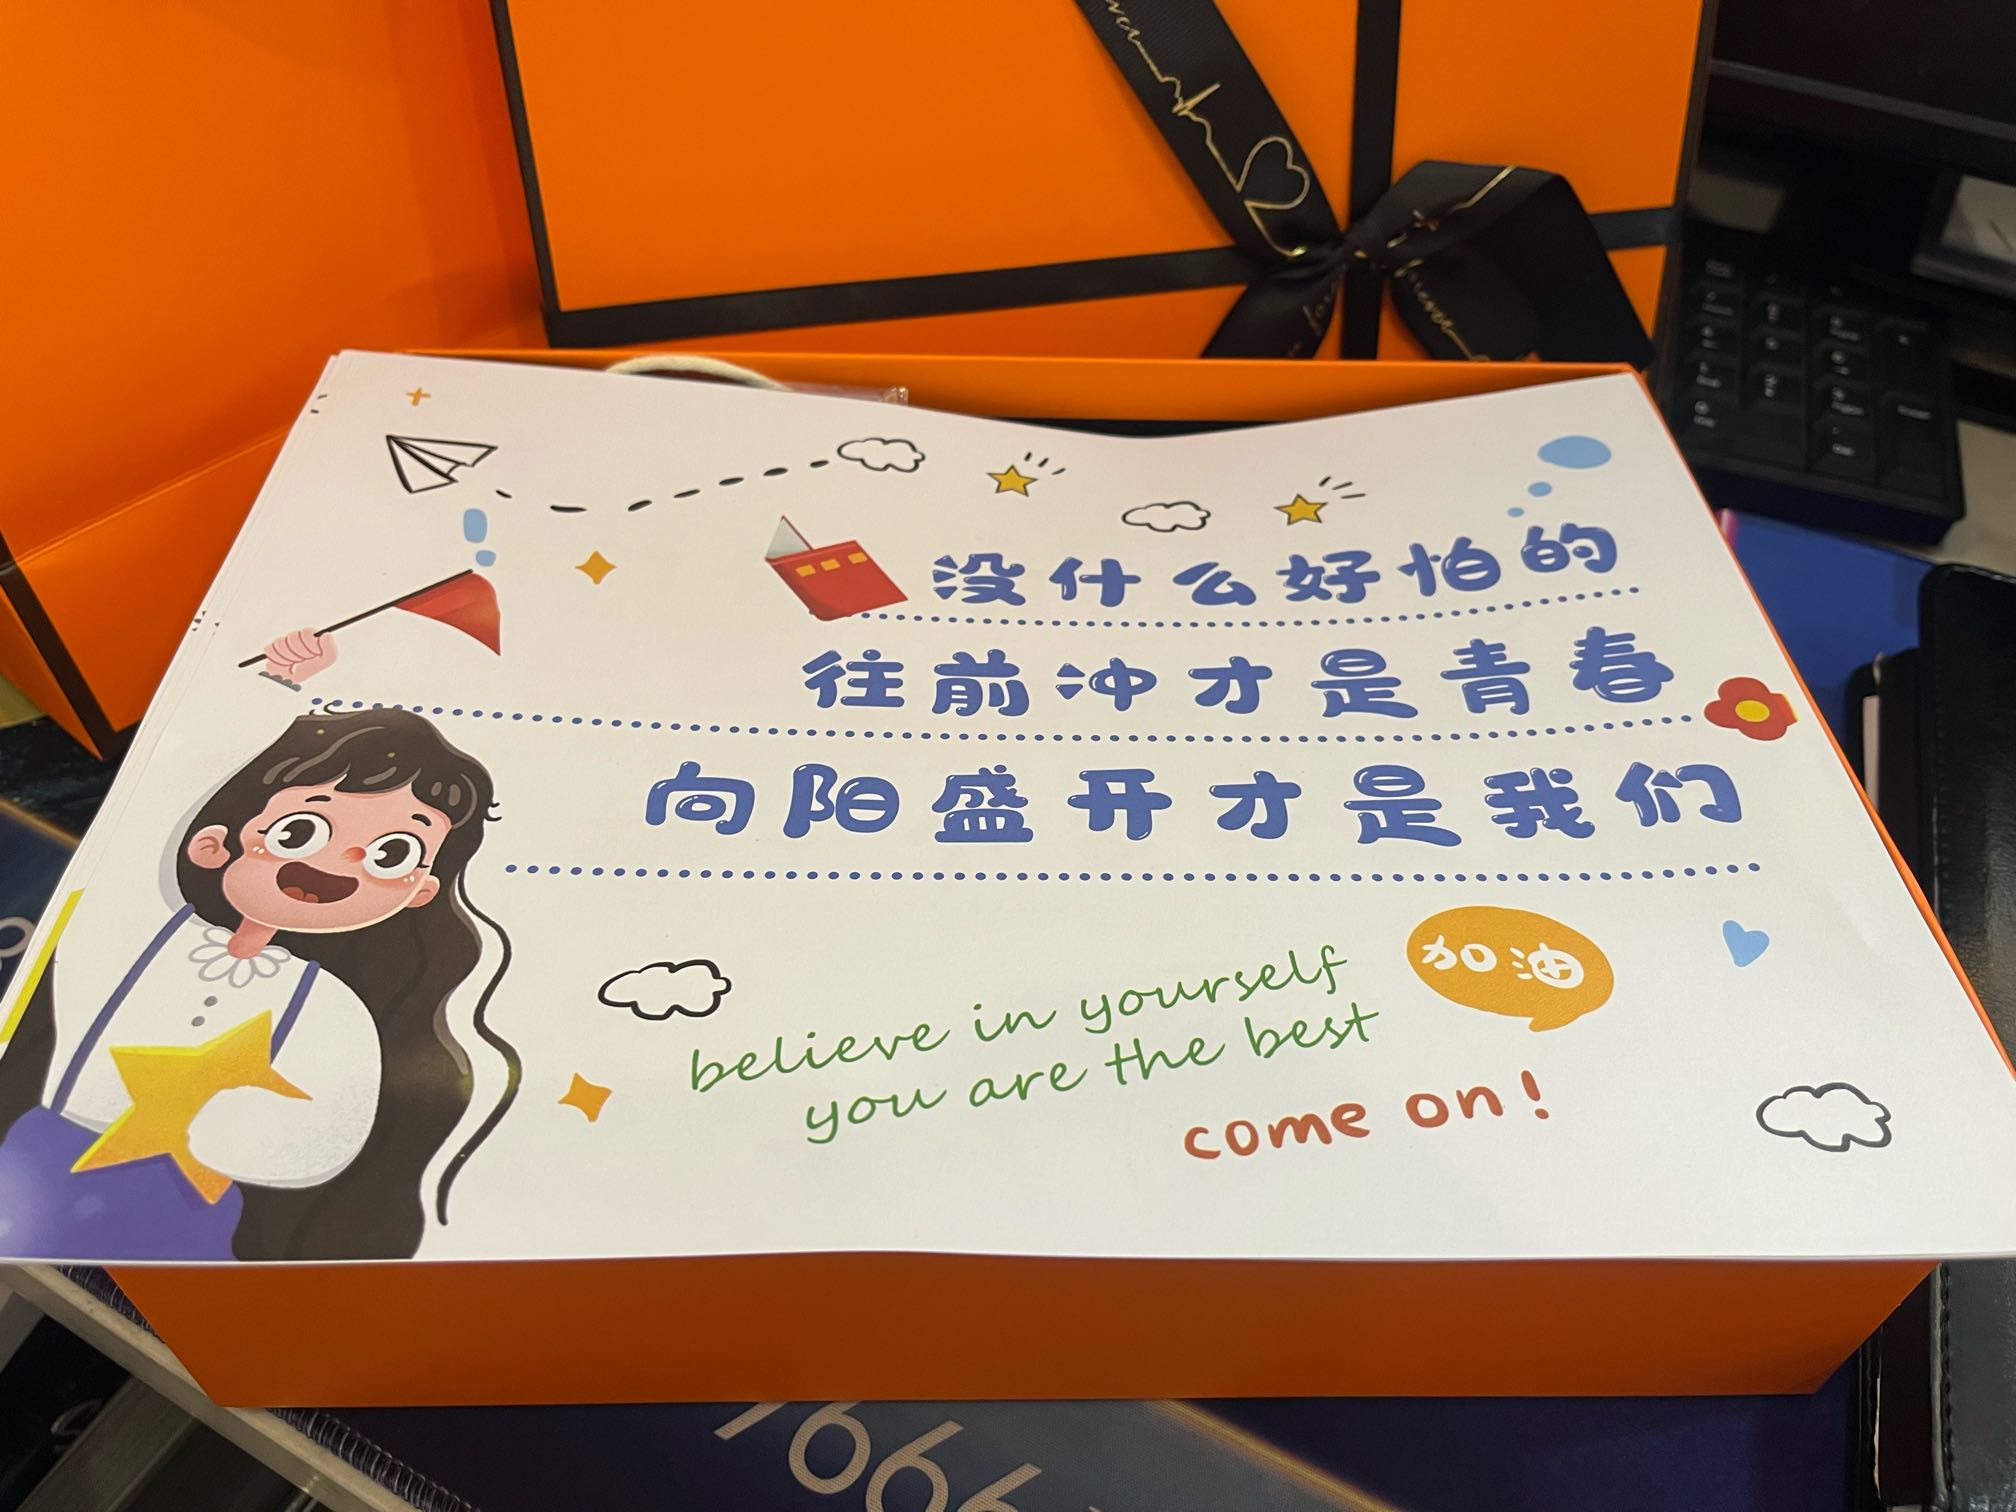 没什么好怕的
往前冲才是青春
向阳盛开才是我们
加油
believe in yourself
you are the best
come on!